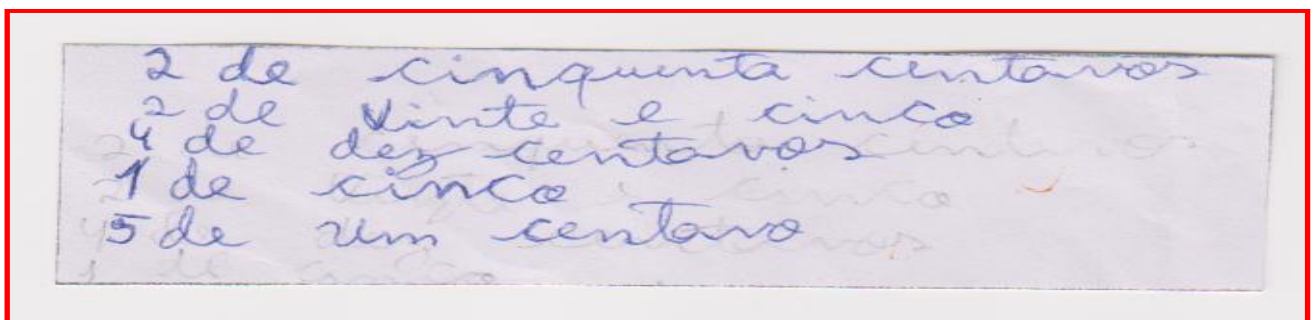 2 de cinquenta centavos
2 de vinte e cinco
4 de dez centavos
1 de cinco
5 de um centavo